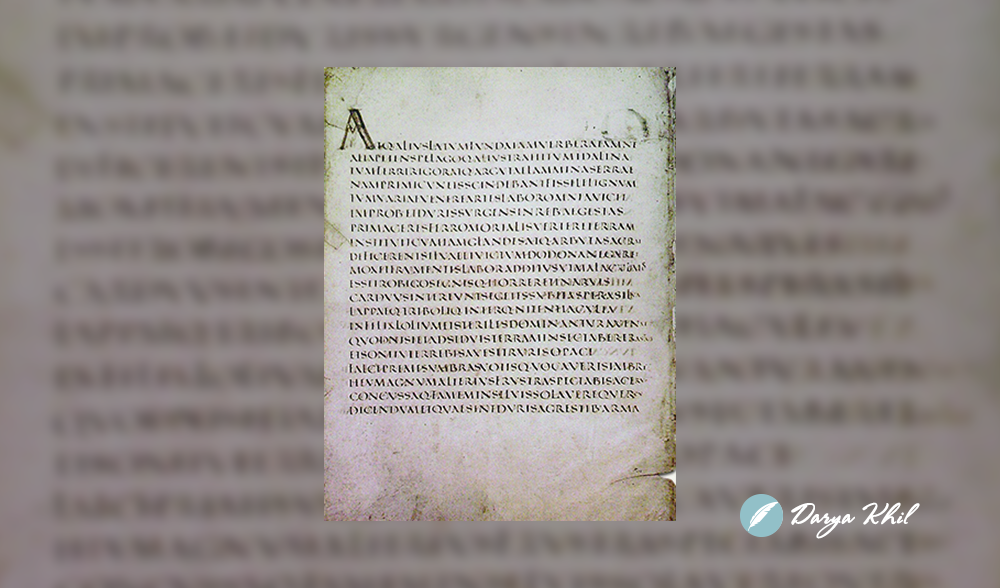 ATQ·ALIVSLATVMFVNDAIAMVERBERATAMNE
ALTAPETENSPELAGOQ·ALIVSTRAHITVMIDALINA
TVMFERRIRIGORATQ·ARGVTAELAMMINASERRAE
NAMPRIMICVNEISSCINDEBANTFISSILELIGNVM
TVMVARIAEVENEREARTESLABOROMNIAVICIT
IMPROBETDVRISSVRGENSINREBVSEGESTAS
PRIMACERESFERROMORTALISVERTERETERRAM
INSTITVITCVMIAMGLANDESATQ·ARBVTASACRAE
DEFICERENTSILVAEETVICTVMDODONANEGARET
MOXETFRVMENTISLABORADDITVSVTMALACVLMOS
ESSETROBIGOSEGNISQ·HORRERETINARVIS
CARDVVSINTEREVNTSEGETESSVBITASPERASILVA
LAPPAEQ·TRIBOLIQ·INTERQ·NITENTIACVLTA
INFELIXLOLIVMETSTERILESDOMINANTVRAVENAE
QVODNISIETADSIDVISTERRAMINSECTABERERA
ETSONITVTERREBISAVESETRVRISOPACI
FALCEPREMESVMBRASVOTISQ·VOCAVERISIMBRE
HEVMAGNVMALTERIVSFRVSTRASPECTABISACER
CONCVSSAQ·FAMEMINSILVISSOLAVEREQVER
DICENDVMETQVAESINTDVRISAGRESTIBARMA
Darya Khil